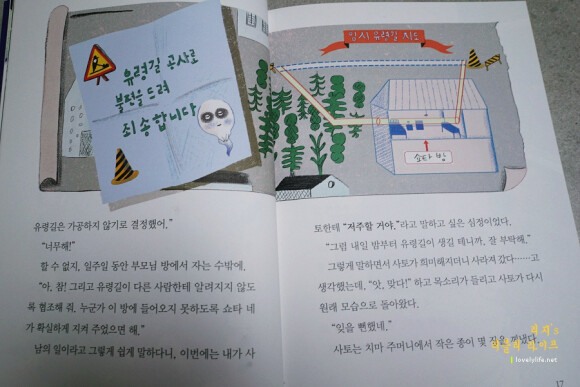 유령길 공사로
불편을 드려
죄송합니다
유령길은 가공하지 않기로 결정했어.”
“너무해!”
할 수 없지, 일주일 동안 부모님 방에서 자는 수밖에.
“아, 참! 그리고 유령길이 다른 사람한테 알려지지 않도
록 협조해 줘. 누군가 이 방에 들어오지 못하도록 쇼타 네
가 확실하게 지켜 주었으면 해.”
남의 일이라고 그렇게 쉽게 말하다니, 이번에는 내가 사
임시 유령길 지도
쇼타 방
토한테 “저주할 거야.”라고 말하고 싶은 심정이었다.
“그럼 내일 밤부터 유령길이 생길 테니까, 잘 부탁해.”
그렇게 말하면서 사토가 희미해지더니 사라져 갔다……고
생각했는데, “앗, 맞다!” 하고 목소리가 들리고 사토가 다시
원래 모습으로 돌아왔다.
“잊을 뻔했네.”
사토는 치마 주머니에서 작은 종이 몇 장을 꺼냈다.
17
lovelylife.net